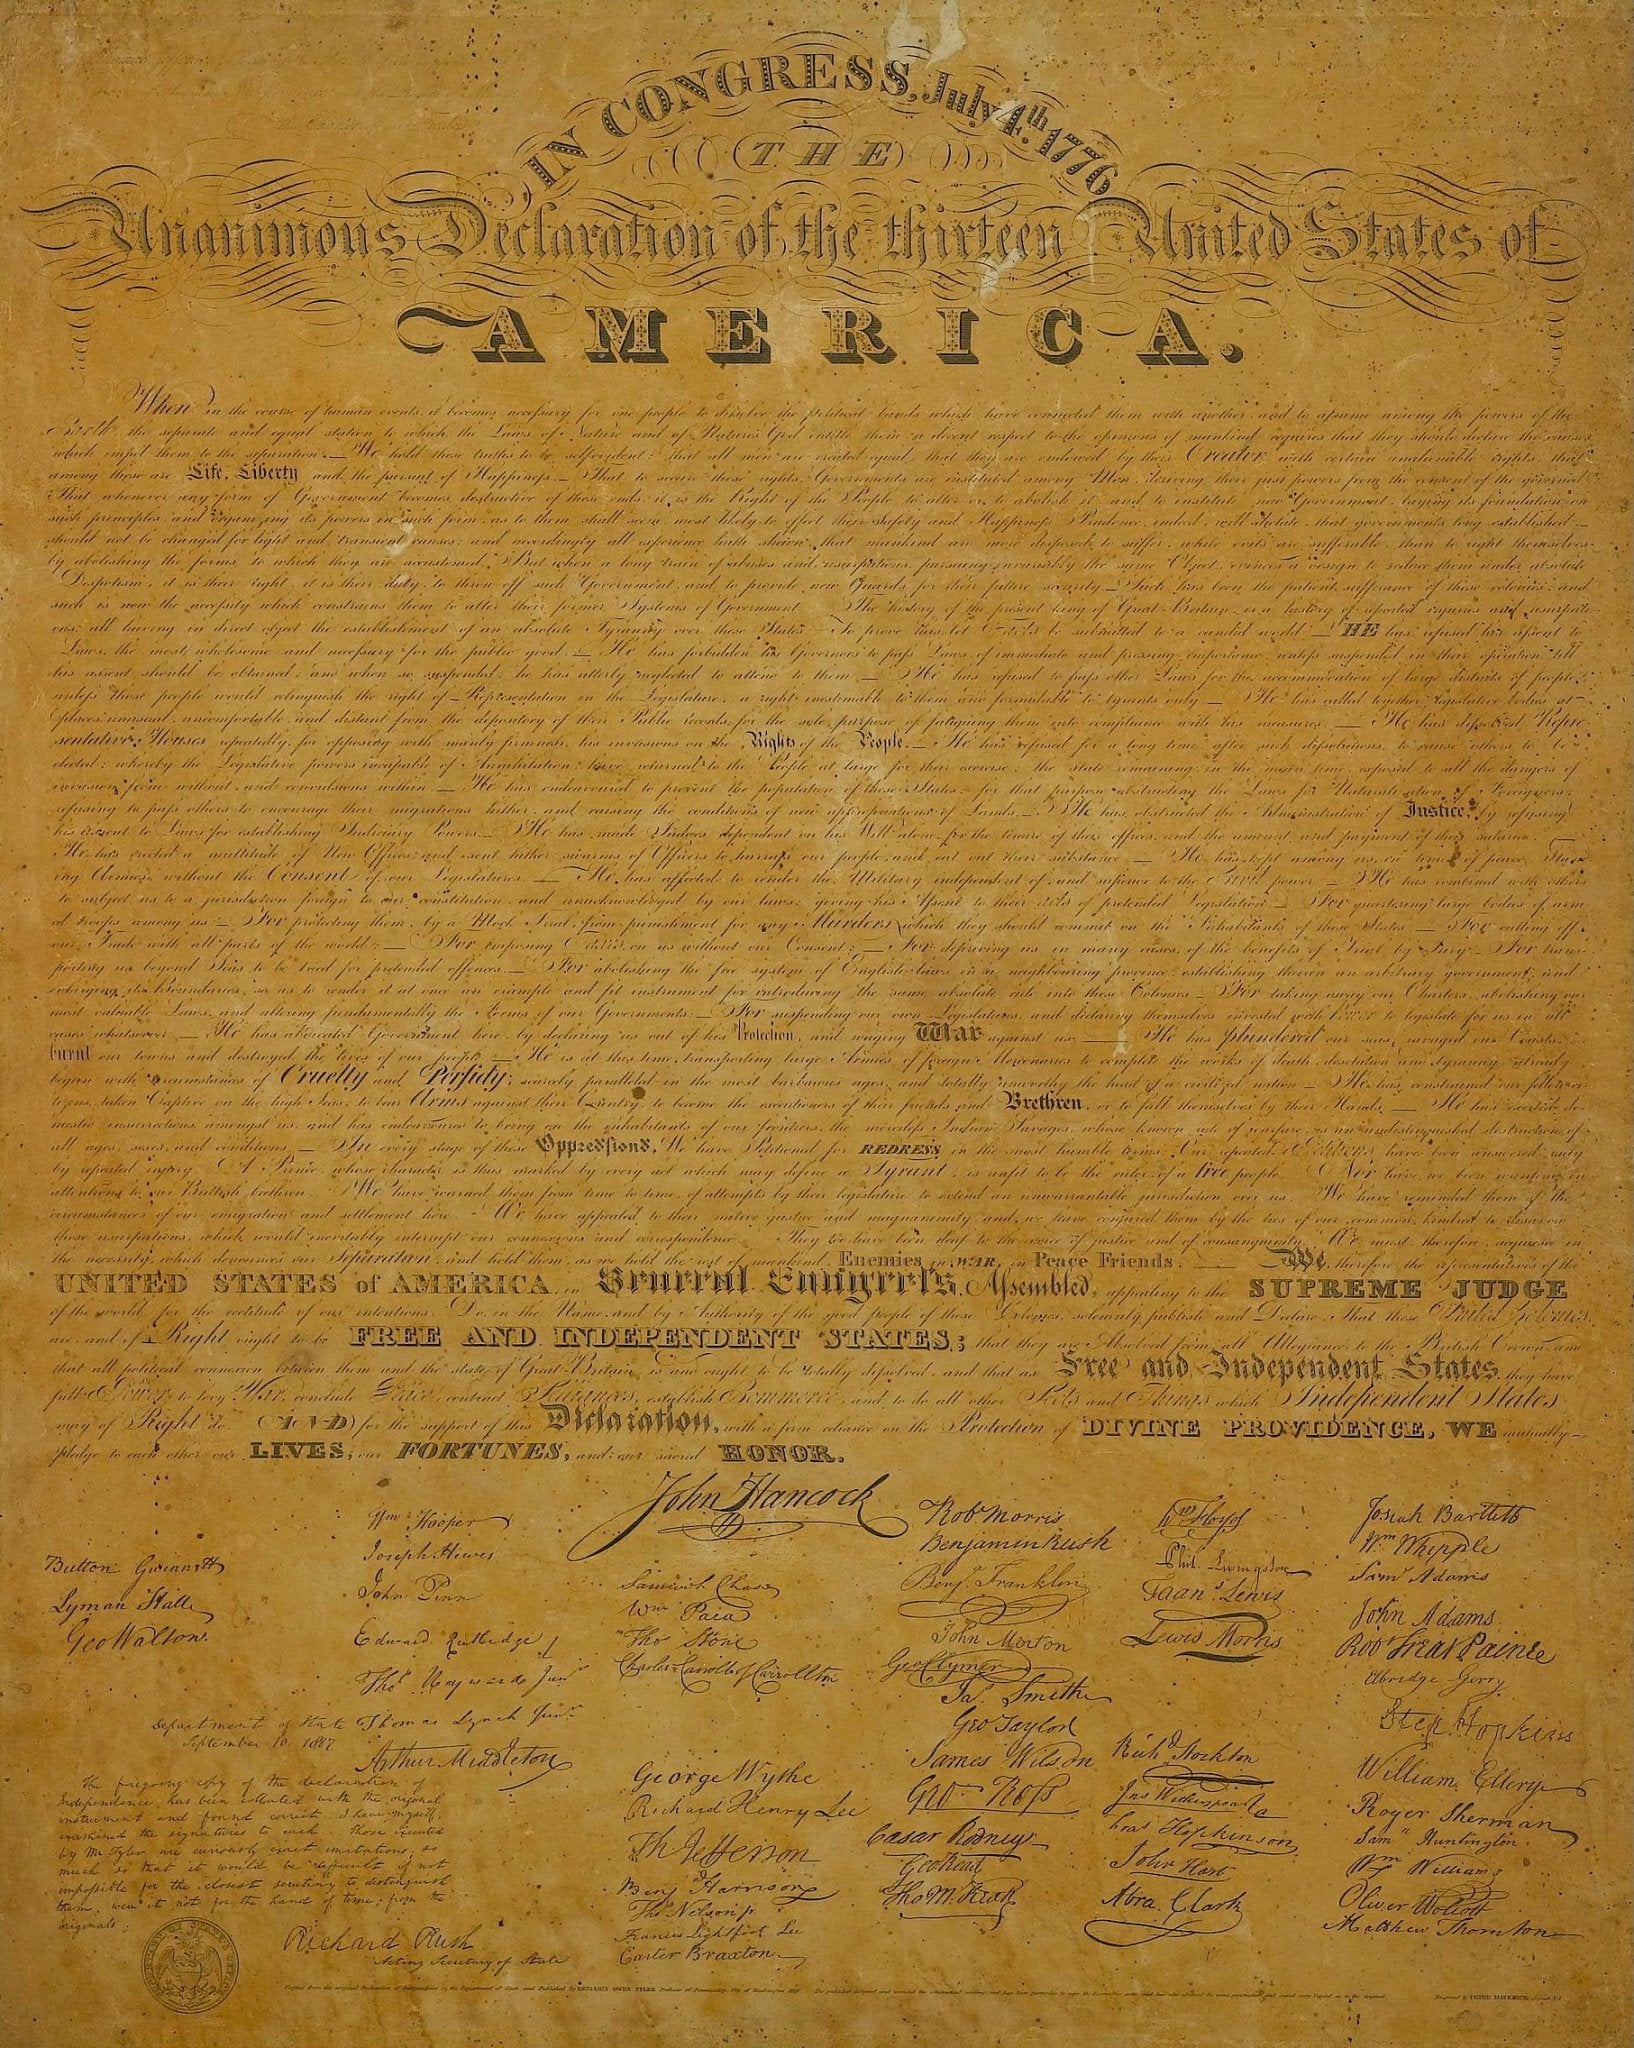 IN CONGRESS, July 4th. 1776.
THE
Unanimous Declaration of the thirteen United States of
AMERICA.
When in the course of human events, it becomes necessary for one people to dissolve the political bands which have connected them with another, and to assume among the powers of the
Earth, the separate and equal station to which the Laws of Nature and of Nature's God entitle them, a decent respect to the opinions of mankind requires that they should declare the causes
which impel them to the separation. — We hold these truths to be self-evident: that all men are created equal, that they are endowed by their Creator with certain unalienable rights, that
among these are Life, Liberty and the pursuit of Happiness. — That to secure these rights, Governments are instituted among Men, deriving their just powers from the consent of the governed
That whenever any form of Government becomes destructive of these ends, it is the Right of the People to alter or to abolish it, and to institute new Government, laying its foundation on
such principles, and organizing its powers in such form, as to them shall seem most likely to effect their safety and Happiness. Prudence, indeed, will dictate, that governments long established
should not be changed for light and transient causes; and accordingly all experience hath shewn, that mankind are more disposed to suffer, while evils are sufferable, than to right themselves
by abolishing the forms to which they are accustomed. But when a long train of abuses and usurpations, pursuing invariably the same Object, evinces a design to reduce them under absolute
Despotism, it is their right, it is their duty, to throw off such Government, and to provide new Guards for their future security. — Such has been the patient sufferance of these colonies; and
such is now the necessity which constrains them to alter their former Systems of Government. The history of the present king of Great Britain is a history of repeated injuries and usurpati-
ons; all having in direct object the establishment of an absolute Tyranny over these States. To prove this, let Facts be submitted to a candid world. — HE has refused his assent to
Laws, the most wholesome and necessary for the public good. — He has forbidden his Governors to pass Laws of immediate and pressing importance, unless suspended in their operation till
his assent should be obtained; and when so suspended, he has utterly neglected to attend to them. — He has refused to pass other Laws for the accommodation of large districts of people,
unless those people would relinquish the right of Representation in the Legislature, a right inestimable to them and formidable to tyrants only. — He has called together legislative bodies at
places unusual, uncomfortable, and distant from the depository of their Public Records, for the sole purpose of fatiguing them into compliance with his measures. — He has dissolved Repre-
sentative Houses repeatedly, for opposing with manly firmness, his invasions on the Rights of the People. — He has refused for a long time, after such dissolutions, to cause others to be
elected; whereby the Legislative powers incapable of Annihilation, have returned to the People at large for their exercise; the state remaining in the mean time exposed to all the dangers of
invasion from without, and convulsions within. — He has endeavoured to prevent the population of these States; for that purpose obstructing the Laws for Naturalization of Foreigners;
refusing to pass others to encourage their migrations hither, and raising the conditions of new appropriations of Lands. — He has obstructed the Administration of Justice, by refusing
his assent to Laws for establishing Judiciary Powers. — He has made Judges dependent on his Will alone, for the tenure of their offices, and the amount and payment of their salaries.
He has erected a multitude of New Offices, and sent hither swarms of Officers to harrass our people, and eat out their substance. — He has kept among us, in times of peace, Stand-
ing Armies, without the Consent of our Legislatures. — He has affected to render the Military independent of, and superior to the Civil power. — He has combined with others
to subject us to a jurisdiction foreign to our constitution, and unacknowledged by our laws; giving his Assent to their acts of pretended Legislation: — For quartering large bodies of arm-
ed troops among us: — For protecting them, by a Mock Trial, from punishment for any Murders which they should commit on the Inhabitants of these States: — For cutting off
our Trade with all parts of the world: — For imposing Taxes on us without our Consent: — For depriving us, in many cases, of the benefits of Trial by Jury: — For trans-
porting us beyond Seas to be tried for pretended offences: — For abolishing the free system of English laws in a neighbouring province, establishing therein an arbitrary government, and
enlarging its boundaries, so as to render it at once an example and fit instrument for introducing the same absolute rule into these Colonies: — For taking away our Charters, abolishing our
most valuable Laws, and altering fundamentally the Forms of our Governments: — For suspending our own Legislatures, and declaring themselves invested with Power to legislate for us in all
cases whatsoever. — He has abdicated Government here, by declaring us out of his Protection, and waging War against us. — He has plundered our seas, ravaged our Coasts,
burnt our towns and destroyed the lives of our people. — He is at this time, transporting large Armies of foreign Mercenaries to complete the works of death, desolation and tyranny, already
begun with circumstances of Cruelty and Perfidy, scarcely paralleled in the most barbarous ages, and totally unworthy the head of a civilized nation. — He has constrained our fellow ci-
tizens, taken Captive on the high Seas, to bear Arms against their Country, to become the executioners of their friends and Brethren, or to fall themselves by their Hands. — He has excited do-
mestic insurrections amongst us, and has endeavoured to bring on the inhabitants of our frontiers, the merciless Indian Savages, whose known rule of warfare, is an undistinguished destruction of
all ages, sexes, and conditions. — In every stage of these Oppressions, We have Petitioned for REDRESS in the most humble terms. Our repeated Petitions have been answered only
by repeated injury. A Prince, whose character is thus marked by every act which may define a Tyrant, is unfit to be the ruler of a free people. Nor have we been wanting in
attentions to our Brittish brethren. We have warned them from time to time, of attempts by their legislature to extend an unwarrantable jurisdiction over us. We have reminded them of the
circumstances of our emigration and settlement here. We have appealed to their native justice and magnanimity, and we have conjured them by the ties of our common kindred to disavow
these usurpations, which would inevitably interrupt our connexions and correspondence. They too have been deaf to the voice of justice and of consanguinity. We must, therefore, acquiesce in
the necessity, which denounces our Separation, and hold them, as we hold the rest of mankind, Enemies in WAR, in Peace Friends. — We, therefore, the representatives of the
UNITED STATES of AMERICA, in General Congress, Assembled, appealing to the SUPREME JUDGE
of the world, for the rectitude of our intentions, Do, in the Name, and by Authority of the good people of these Colonies, solemnly publish and Declare, That these United Colonies
are, and of Right ought to be FREE AND INDEPENDENT STATES; that they are Absolved from all Allegiance to the British Crown, and
that all political connexion between them and the state of Great Britain, is and ought to be totally dissolved; and that as Free and Independent States, they have
full Power to levy War, conclude Peace, contract Alliances, establish Commerce, and to do all other Acts and Things which Independent States
may of Right do. AND for the support of this Declaration, with a firm reliance on the Protection of DIVINE PROVIDENCE, WE mutually
pledge to each other our LIVES, our FORTUNES, and our sacred HONOR.
John Hancock
Button Gwinnett
Lyman Hall
Geo Walton.
Wm Hooper
Joseph Hewes
John Penn
Edward Rutledge
Thos Heyward Junr
Thomas Lynch Junr
Arthur Middleton
Samuel Chase
Wm Paca
Thos Stone
Charles Carroll of Carrollton
George Wythe
Richard Henry Lee
Th Jefferson
Benj Harrison
Thos Nelson jr
Francis Lightfoot Lee
Carter Braxton
Robt Morris
Benjamin Rush
Benj Franklin
John Morton
Geo Clymer
Jas Smith
Geo Taylor
James Wilson
Geo Ross
Caesar Rodney
Geo Read
Tho M:Kean
Wm Floyd
Phil. Livingston
Frans Lewis
Lewis Morris
Richd Stockton
Jno Witherspoon
Fras Hopkinson
John Hart
Abra Clark
Josiah Bartlett
Wm Whipple
Saml Adams
John Adams
Robt Treat Paine
Elbridge Gerry
Step Hopkins
William Ellery
Roger Sherman
Saml Huntington
Wm Williams
Oliver Wolcott
Matthew Thornton
Department of State
September 10, 1817.
The foregoing copy of the declaration of
Independence has been collated with the original
instrument and found correct. I have myself,
examined the signatures to each. Those executed
by Mr Tyler are curiously exact imitations; so
much so that it would be difficult, if not
impossible for the closest scrutiny to distinguish
them, were it not for the hand of time, from the
originals.
Richard Rush
Acting Secretary of State